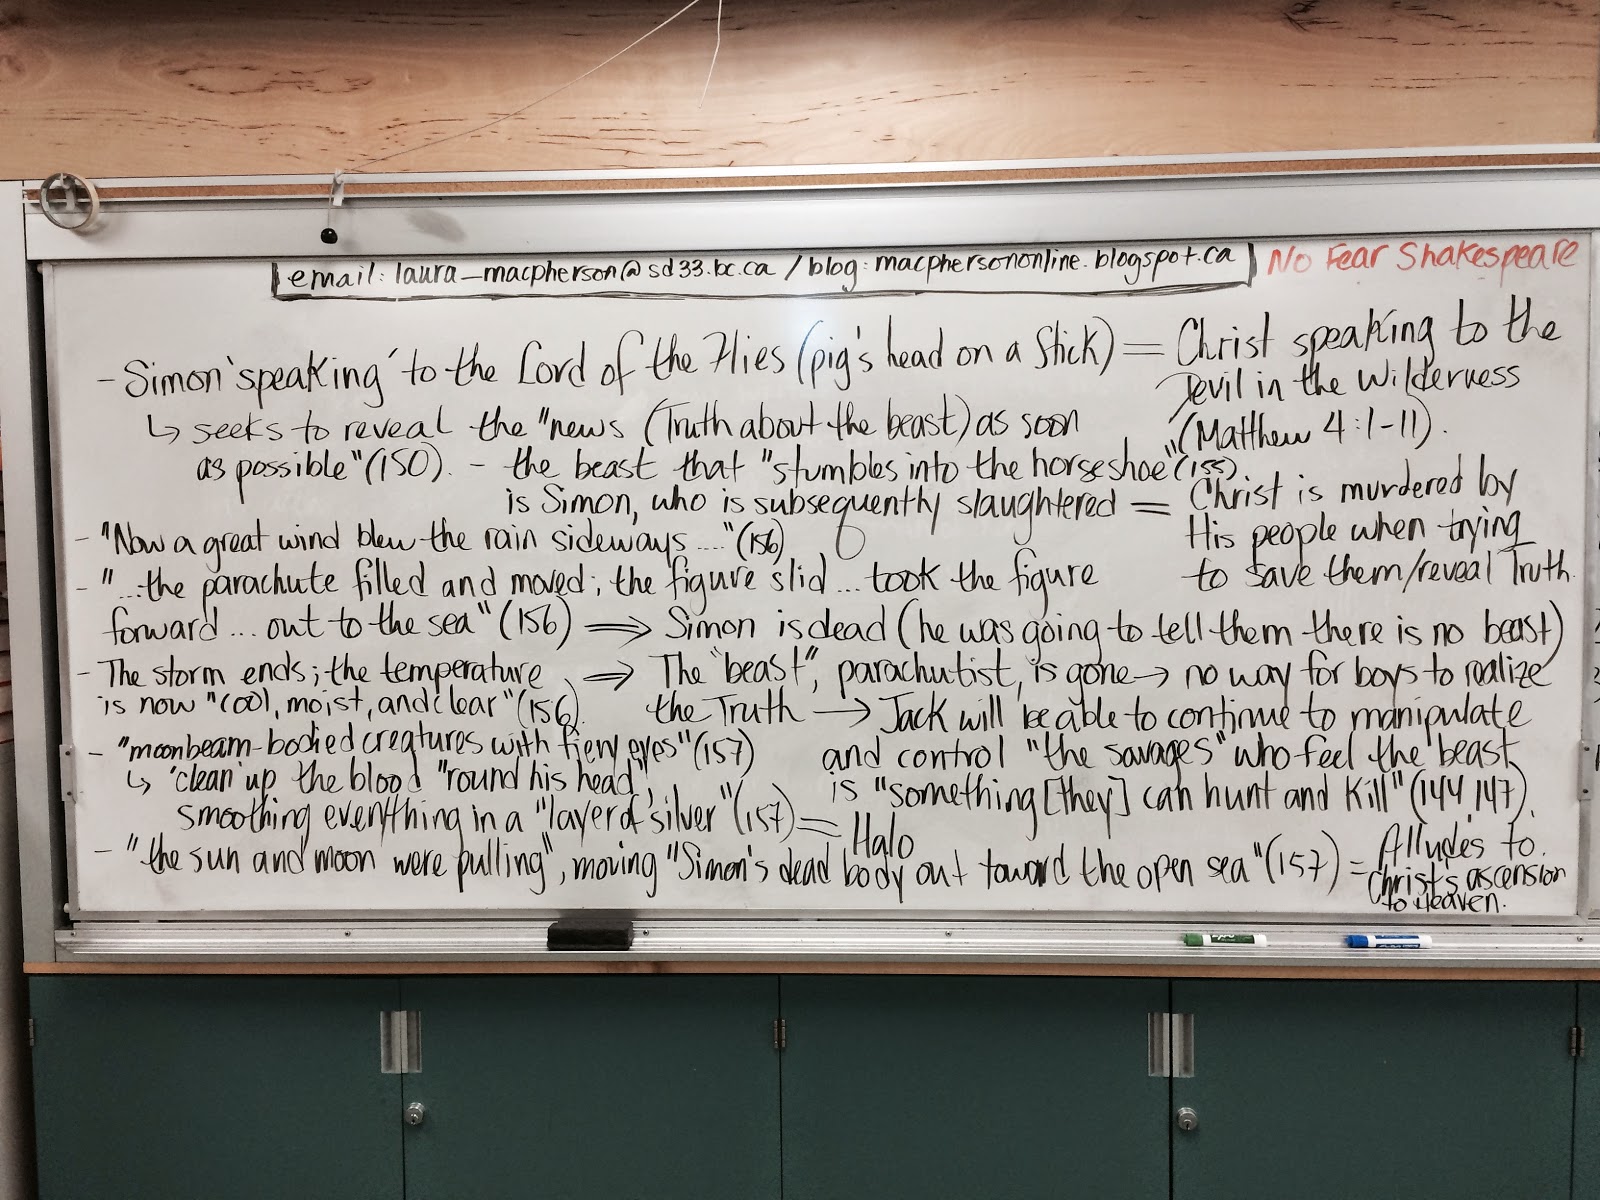 email: laura_macpherson@sd33.bc.ca / blog: macphersononline.blogspot.ca
No Fear Shakespeare
- Simon 'speaking' to the Lord of the Flies (pig's head on a stick) = Christ speaking to the
Devil in the Wilderness
(Matthew 4:1-11).
↳ seeks to reveal the "news (Truth about the beast) as soon
as possible" (150). - the beast that "stumbles into the horseshoe" (155)
is Simon, who is subsequently slaughtered = Christ is murdered by
His people when trying
to save them/reveal Truth.
- "Now a great wind blew the rain sideways...." (156)
- "...the parachute filled and moved; the figure slid... took the figure
forward... out to the sea" (156) ⇒ Simon is dead (he was going to tell them there is no beast)
- The storm ends; the temperature ⇒ The "beast", parachutist, is gone → no way for boys to realize
is now "cool, moist, and clear" (156). the Truth → Jack will be able to continue to manipulate
and control "the savages" who feel the beast
is "something [they] can hunt and kill" (144, 147).
- "moonbeam-bodied creatures with fiery eyes" (157)
↳ 'clean' up the blood "round his head",
smoothing everything in a "layer of silver" (157) = Halo
- "the sun and moon were pulling", moving "Simon's dead body out toward the open sea" (157) = Alludes to
Christ's ascension
to Heaven.